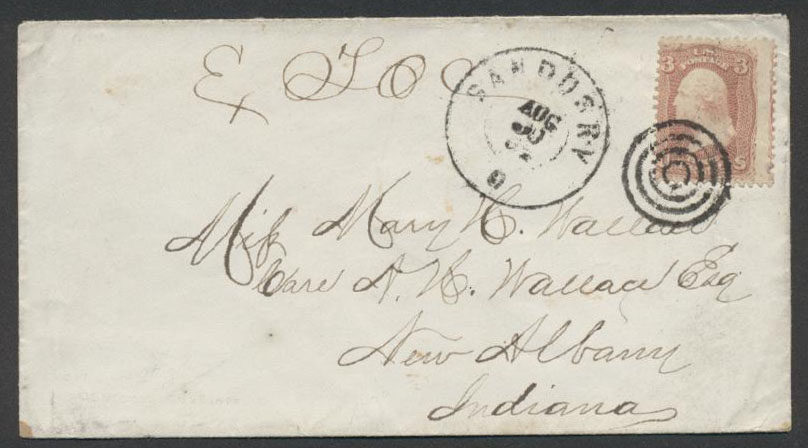 SANDUSKY
AUG
O
3 U.S. POSTAGE 3
Miſs Mary H. Wallace
Care A. H. Wallace Esq
New Albany
Indiana